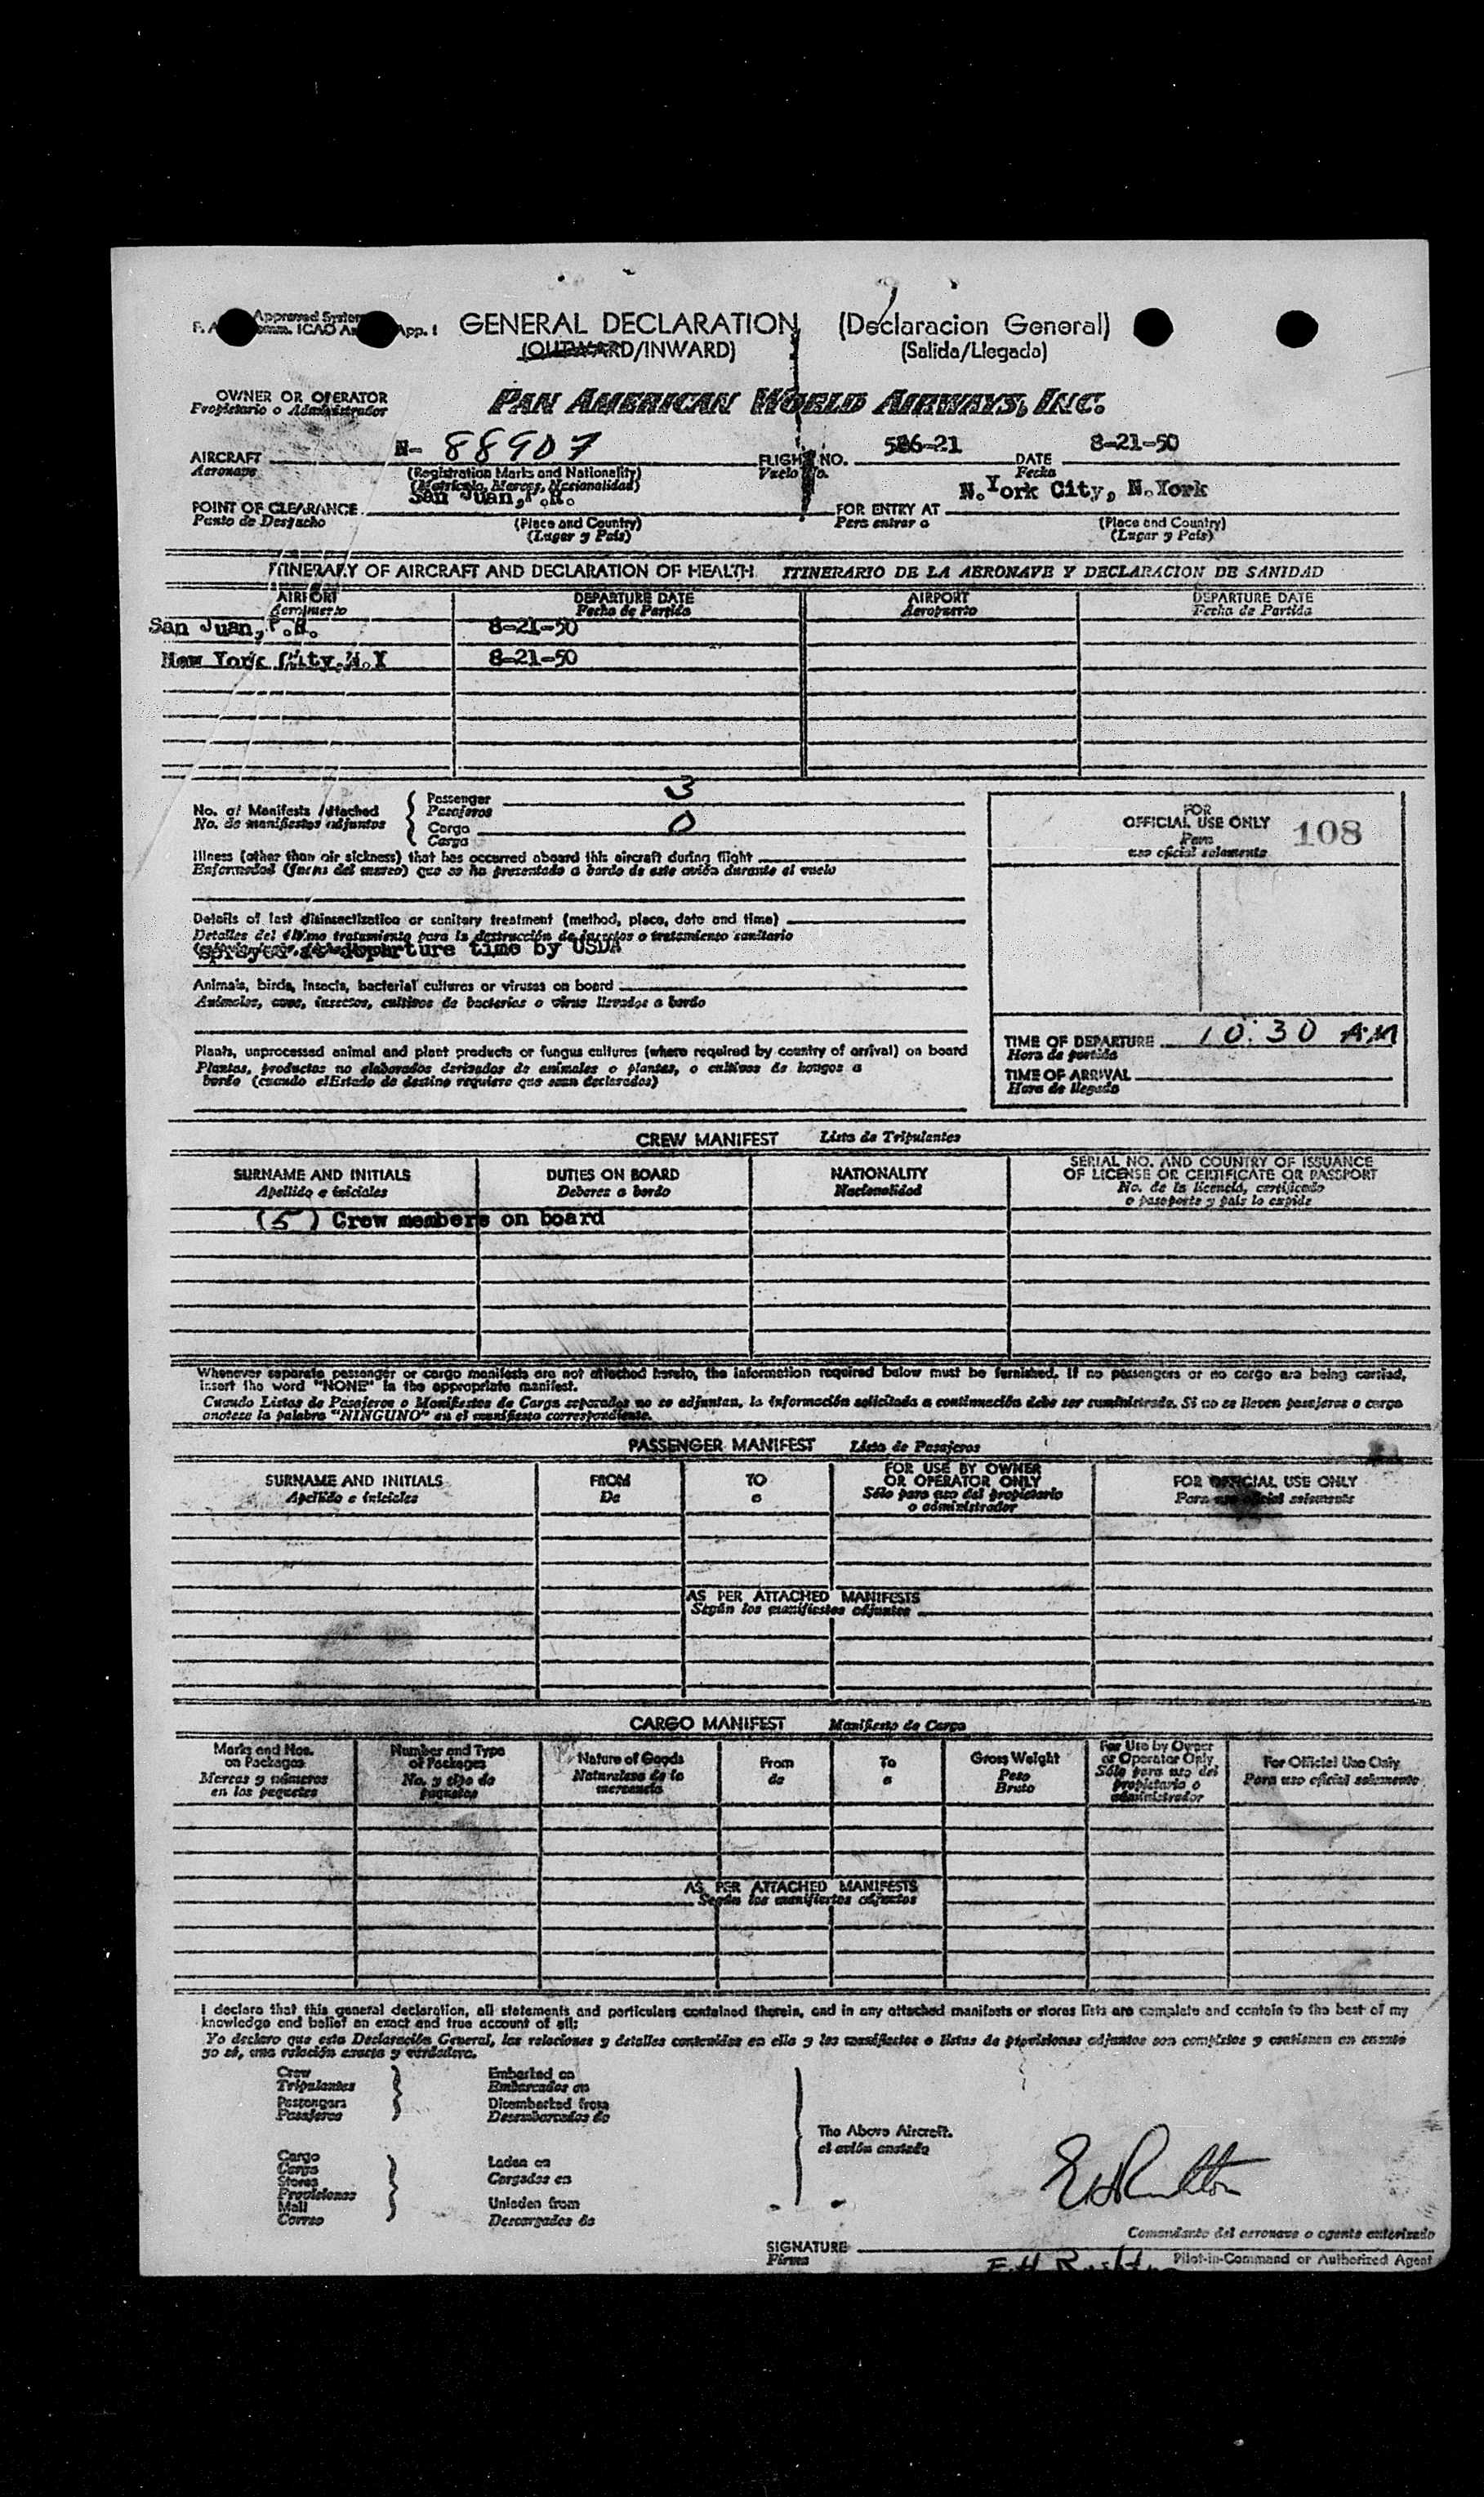 Approved System
F. A. Comm. ICAO An App. 1
GENERAL DECLARATION (Declaracion General)
(OUTWARD/INWARD) (Salida/Llegada)
OWNER OR OPERATOR
Propietario o Administrador
PAN AMERICAN WORLD AIRWAYS, INC.
AIRCRAFT N- 88907 FLIGHT NO. 586-21 DATE 8-21-50
Aeronave (Registration Marks and Nationality) Vuelo No. Fecha
(Matrícula, Marcas, Nacionalidad)
San Juan, P.R. N.York City, N.York
POINT OF CLEARANCE FOR ENTRY AT
Punto de Despacho (Place and Country) Para entrar a (Place and Country)
(Lugar y País) (Lugar y País)
ITINERARY OF AIRCRAFT AND DECLARATION OF HEALTH ITINERARIO DE LA AERONAVE Y DECLARACION DE SANIDAD
AIRPORT DEPARTURE DATE AIRPORT DEPARTURE DATE
Aeropuerto Fecha de Partida Aeropuerto Fecha de Partida
San Juan, P.R. 8-21-50
New York City.N.Y 8-21-50
No. of Manifests Attached Passenger 3
No. de manifiestos adjuntos Pasajeros
Cargo 0
Carga
FOR
OFFICIAL USE ONLY 108
Para
uso oficial solamente
Illness (other than air sickness) that has occurred aboard this aircraft during flight
Enfermedad (fuera del mareo) que se ha presentado a bordo de este avión durante el vuelo
Details of last disinsectization or sanitary treatment (method, place, date and time)
Detalles del último tratamiento para la destrucción de insectos o tratamiento sanitario
sprayed at departure time by USDA
Animals, birds, insects, bacterial cultures or viruses on board
Animales, aves, insectos, cultivos de bacterias o virus llevados a bordo
Plants, unprocessed animal and plant products or fungus cultures (where required by country of arrival) on board
Plantas, productos no elaborados derivados de animales o plantas, o cultivos de hongos a
bordo (cuando el Estado de destino requiere que sean declarados)
TIME OF DEPARTURE 10:30 AM
Hora de partida
TIME OF ARRIVAL
Hora de llegada
CREW MANIFEST Lista de Tripulantes
SURNAME AND INITIALS DUTIES ON BOARD NATIONALITY SERIAL NO. AND COUNTRY OF ISSUANCE
OF LICENSE OR CERTIFICATE OR PASSPORT
Apellido e iniciales Deberes a bordo Nacionalidad No. de la licencia, certificado
o pasaporte y país lo expide
(5) Crew members on board
Whenever separate passenger or cargo manifests are not attached hereto, the information required below must be furnished. If no passengers or no cargo are being carried,
insert the word "NONE" in the appropriate manifest.
Cuando Listas de Pasajeros o Manifiestos de Carga separados no se adjuntan, la información solicitada a continuación debe ser suministrada. Si no se lleven pasajeros o carga
anotese la palabra "NINGUNO" en el manifiesto correspondiente.
PASSENGER MANIFEST Lista de Pasajeros
SURNAME AND INITIALS FROM TO FOR USE BY OWNER
OR OPERATOR ONLY FOR OFFICIAL USE ONLY
Apellido e iniciales De a Sólo para uso del propietario
o administrador Para uso oficial solamente
AS PER ATTACHED MANIFESTS
Según los manifiestos adjuntos
CARGO MANIFEST Manifiesto de Carga
Marks and Nos.
on Packages
Marcas y números
en los paquetes
Number and Type
of Packages
No. y tipo de
paquetes
Nature of Goods
Naturaleza de la
mercancía
From
de
To
a
Gross Weight
Peso
Bruto
For Use by Owner
or Operator Only
Sólo para uso del
propietario o
administrador
For Official Use Only
Para uso oficial solamente
AS PER ATTACHED MANIFESTS
Según los manifiestos adjuntos
I declare that this general declaration, all statements and particulars contained therein, and in any attached manifests or stores lists are complete and contain to the best of my
knowledge and belief an exact and true account of all:
Yo declaro que esta Declaración General, las relaciones y detalles contenidas en ella y los manifiestos o listas de provisiones adjuntos son completos y contienen en cuanto
yo sé, una relación exacta y verdadera.
Crew Embarked on
Tripulantes Embarcados en
Passengers Disembarked from
Pasajeros Desembarcados de
The Above Aircraft.
el avión anotado
Cargo Laden on
Carga Cargados en
Stores
Provisiones
Mail Unladen from
Correo Descargados de
Comandante del aeronave o agente autorizado
SIGNATURE
Firma
E.H. Rushton Pilot-in-Command or Authorized Agent